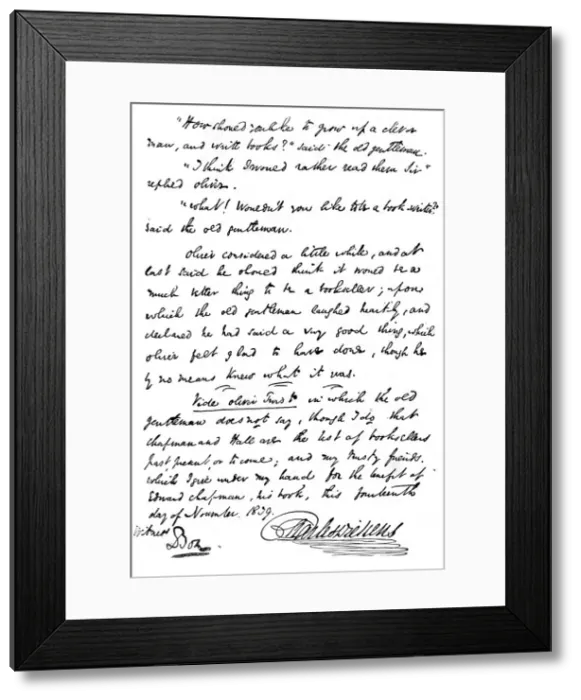 "How should you like to grow up a clever
man, and write books?" said the old gentleman.
"I think I would rather read them Sir"
replied oliver.
"what! Wouldn't you like to be a book writer?"
said the old gentleman.
Oliver considered a little while, and at
last said he should think it would be a
much better thing to be a bookseller; upon
which the old gentleman laughed heartily, and
declared he had said a very good thing, which
oliver felt glad to have done, though he
by no means knew what it was.
Vide Oliver Twist in which the old
gentleman does not say, though I do, that
chapman and Hall are the best of booksellers
past present or to come; and my trusty friends.
which I give under my hand for the benefit of
Edward chapman, his book, this fourteenth
day of November 1839.
Charles Dickens
Witness
Boz